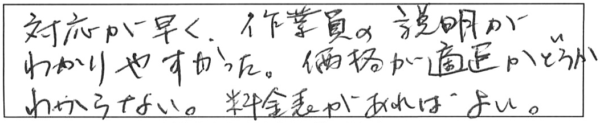 対応が早く、作業員の説明が
わかりやすかった。価格が適正かどうか
わからない。料金表があればよい。